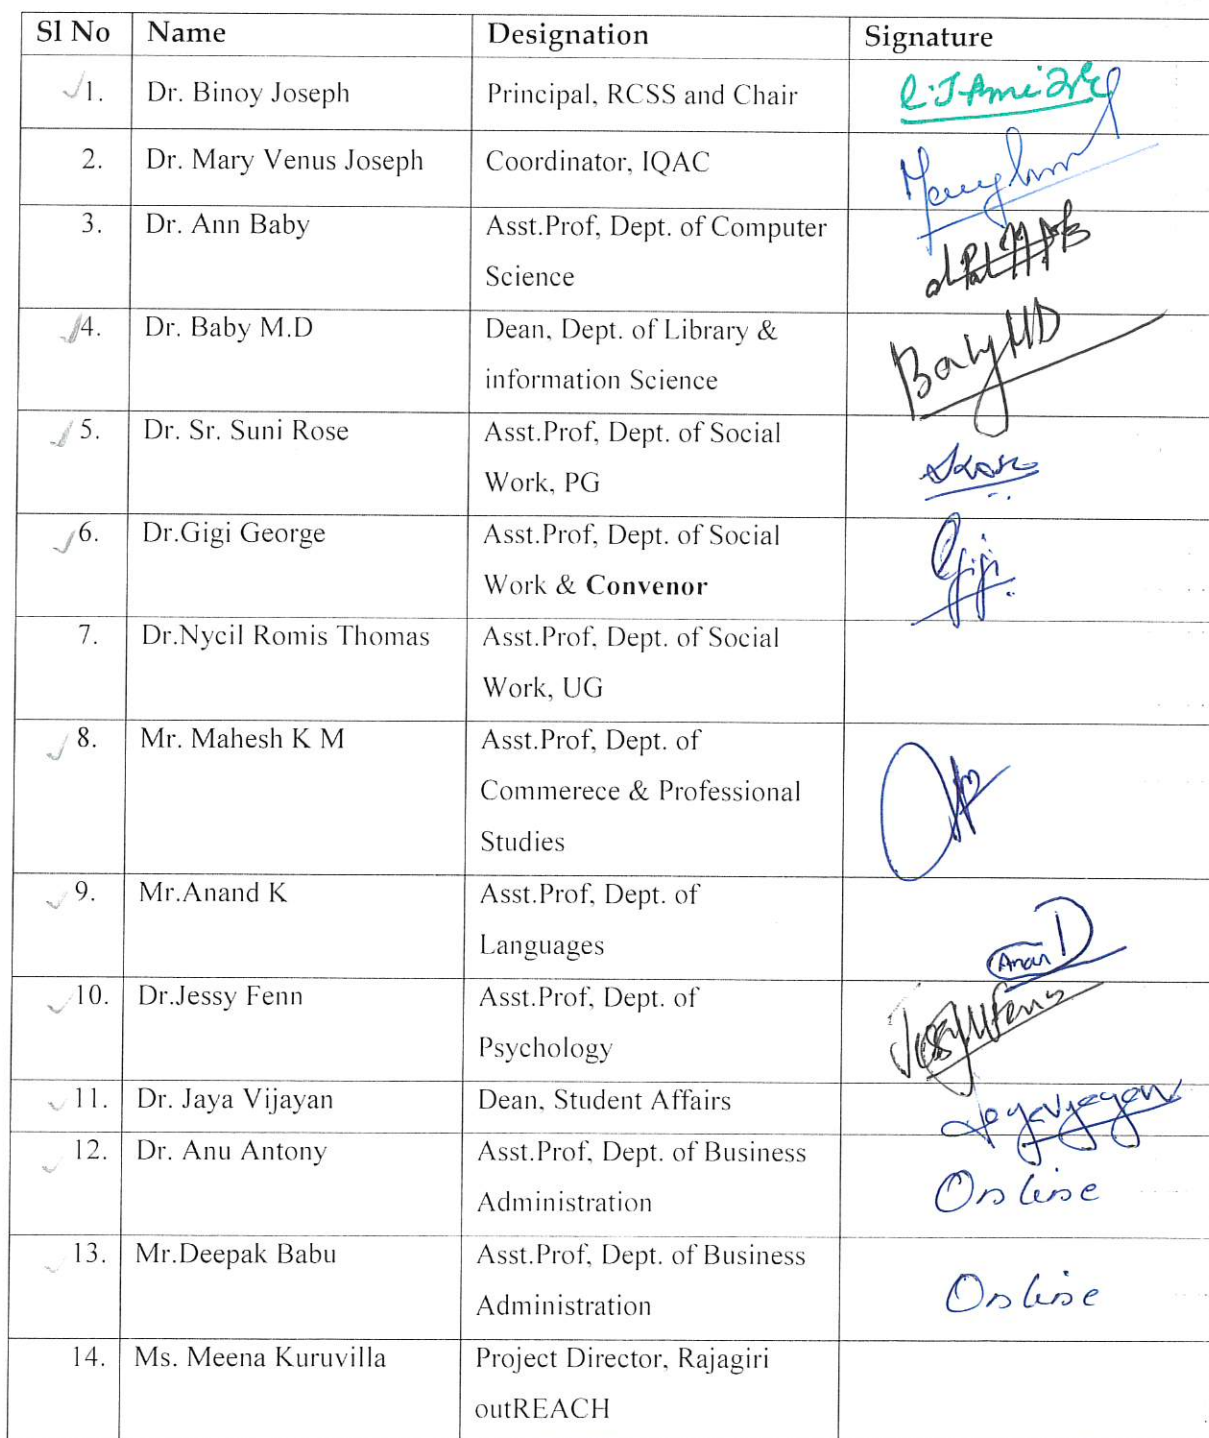 Sl No Name Designation Signature
1. Dr. Binoy Joseph Principal, RCSS and Chair
2. Dr. Mary Venus Joseph Coordinator, IQAC
3. Dr. Ann Baby Asst.Prof, Dept. of Computer
Science
4. Dr. Baby M.D Dean, Dept. of Library & Baby MD
information Science
5. Dr. Sr. Suni Rose Asst.Prof, Dept. of Social
Work, PG
6. Dr.Gigi George Asst.Prof, Dept. of Social Gigi
Work & Convenor
7. Dr.Nycil Romis Thomas Asst.Prof, Dept. of Social
Work, UG
8. Mr. Mahesh K M Asst.Prof, Dept. of
Commerece & Professional
Studies
9. Mr.Anand K Asst.Prof, Dept. of
Languages AnanD
10. Dr.Jessy Fenn Asst.Prof, Dept. of
Psychology
11. Dr. Jaya Vijayan Dean, Student Affairs
12. Dr. Anu Antony Asst.Prof, Dept. of Business
Administration Online
13. Mr.Deepak Babu Asst.Prof, Dept. of Business
Administration Online
14. Ms. Meena Kuruvilla Project Director, Rajagiri
outREACH